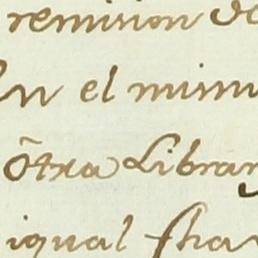 remision de
En el mism
Otra Libran
igual fha